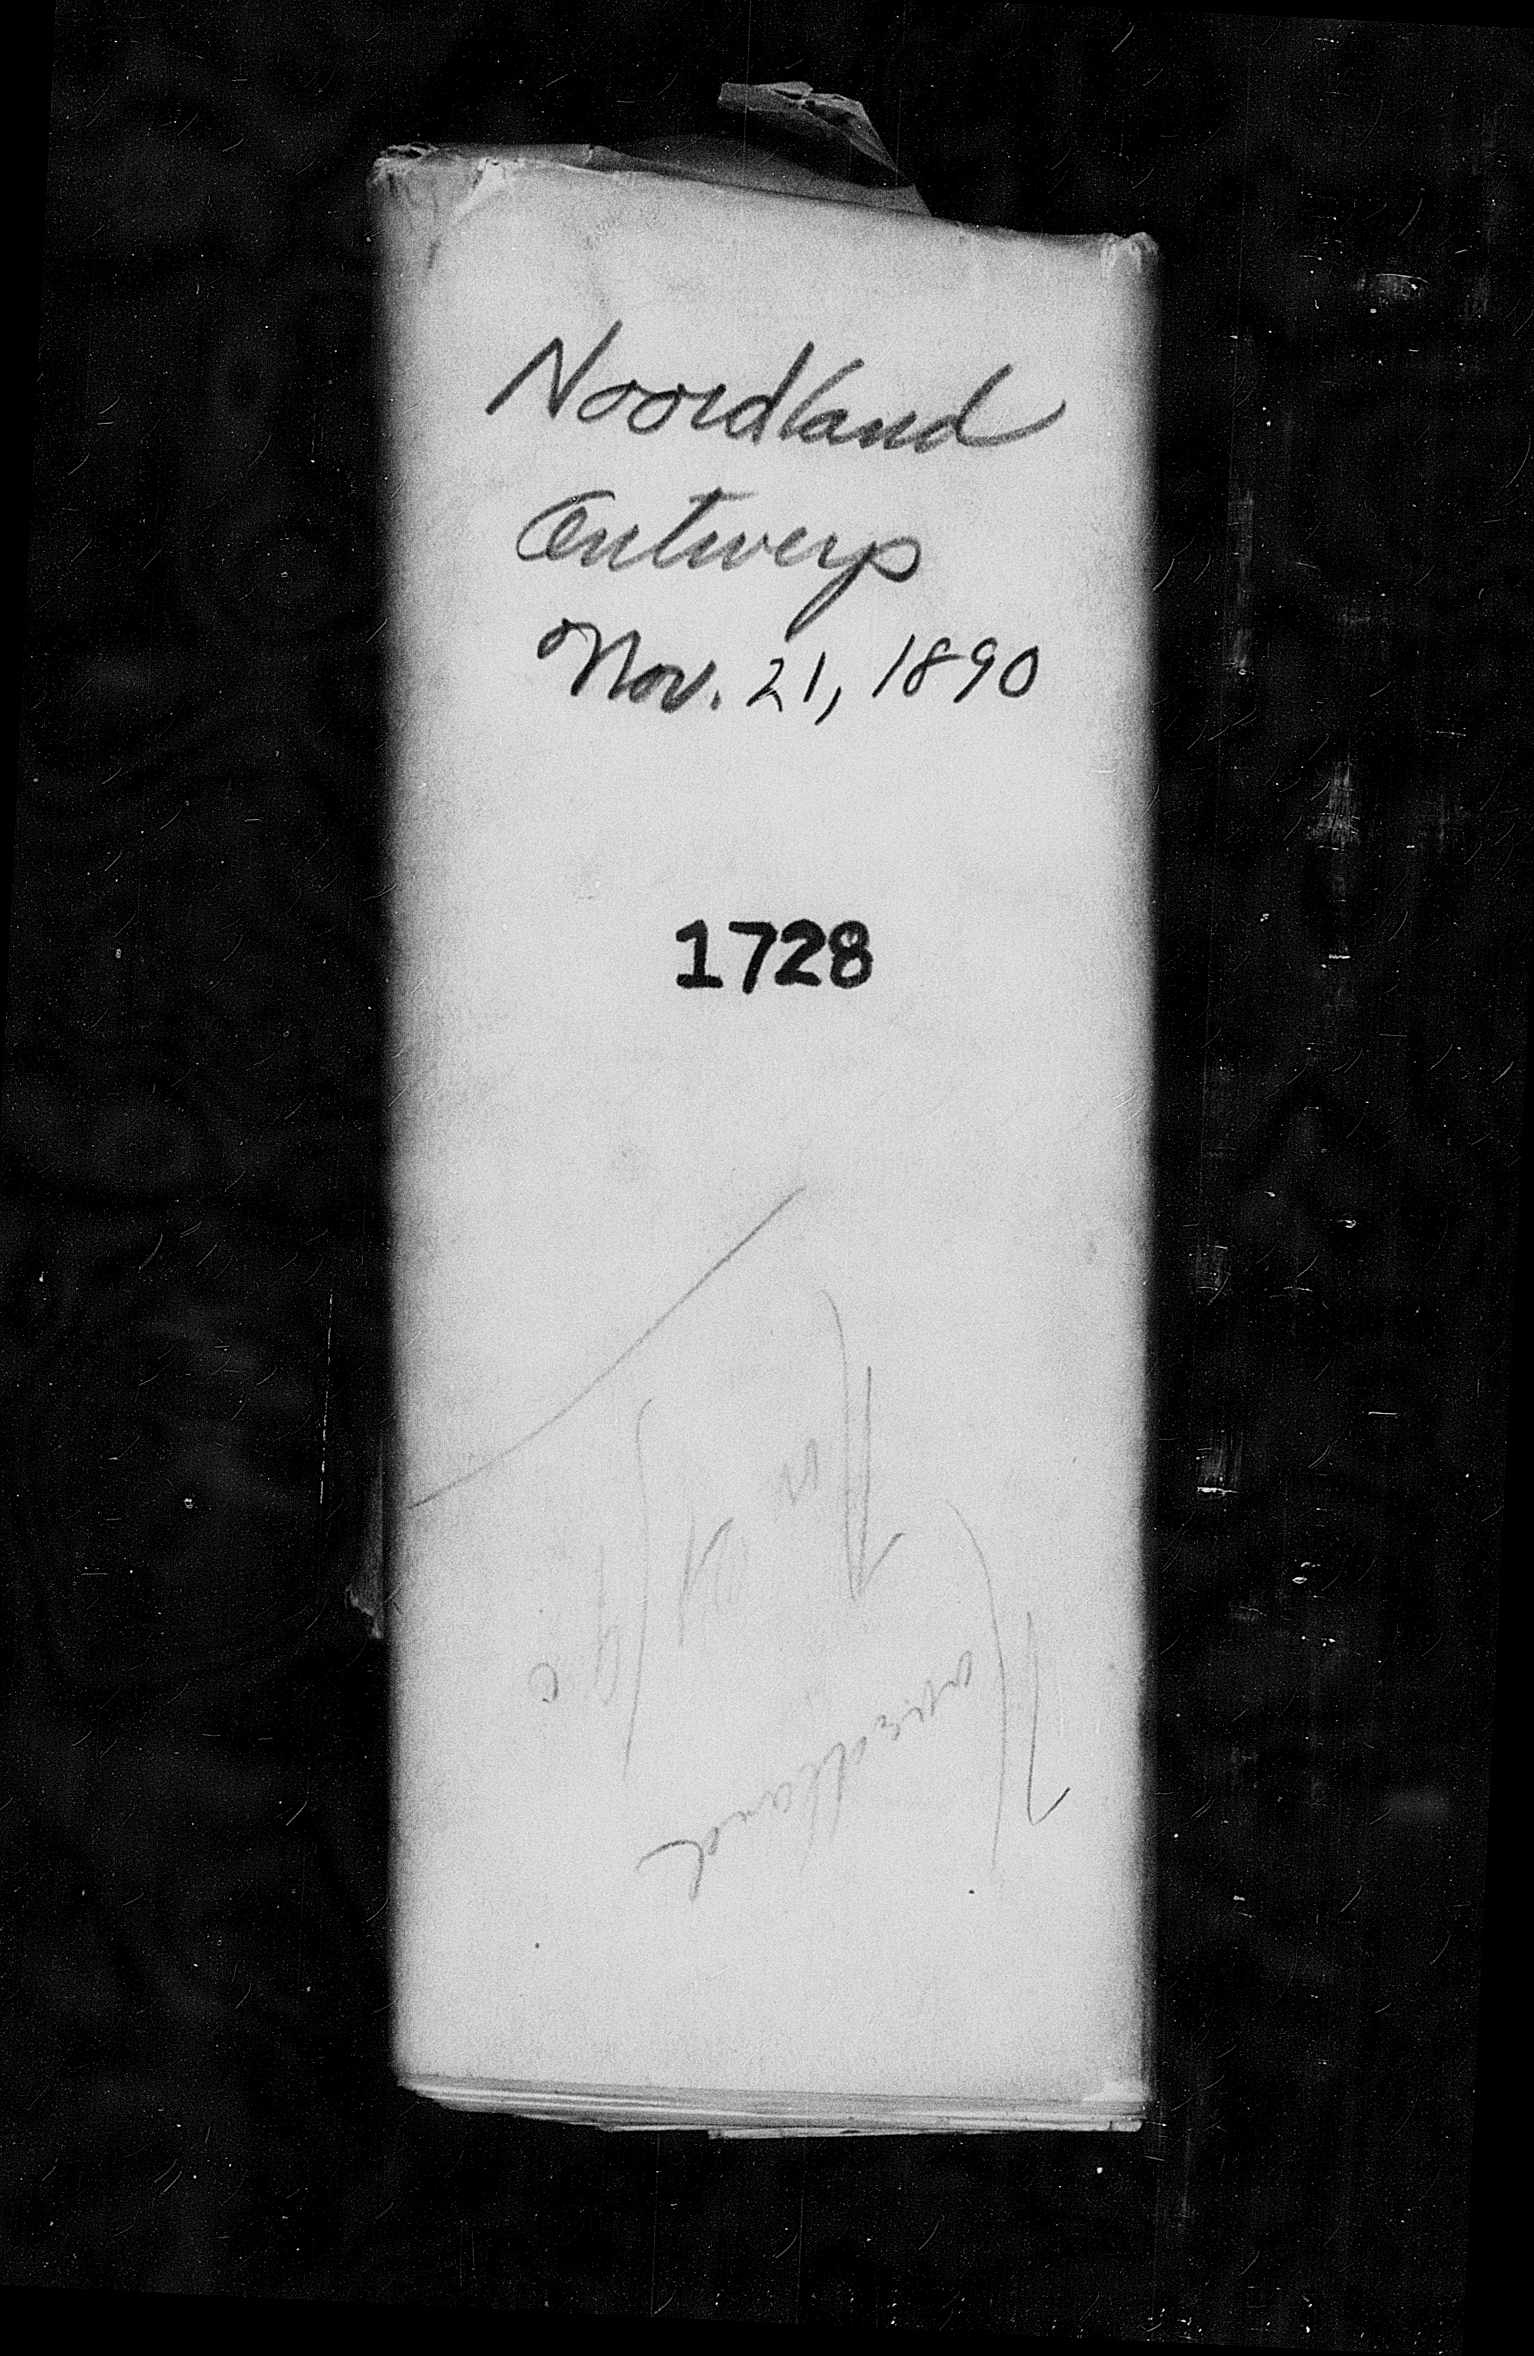 Noordland
Antwerp
Nov. 21, 1890
1728
Nov 21
90
Noordland